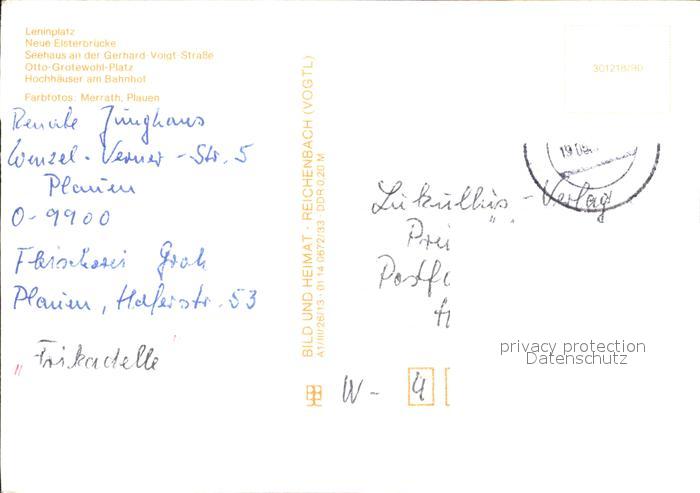 Leninplatz
Neue Elsterbrücke
Seehaus an der Gerhard-Voigt-Straße
Otto-Grotewohl-Platz
Hochhäuser am Bahnhof
Farbfotos: Merrath, Plauen
Renate Junghans
Wenzel-Verner-Str. 5
Plauen
O-9900
Fleischerei Groh
Plauen, Haferstr. 53
"Frikadelle"
BILD UND HEIMAT · REICHENBACH (VOGTL)
A1/III/26/13 · 01 14 0672/33 DDR 0,20 M
301218/90
Lukullus-Verlag
Postf
W- 4
privacy protection
Datenschutz